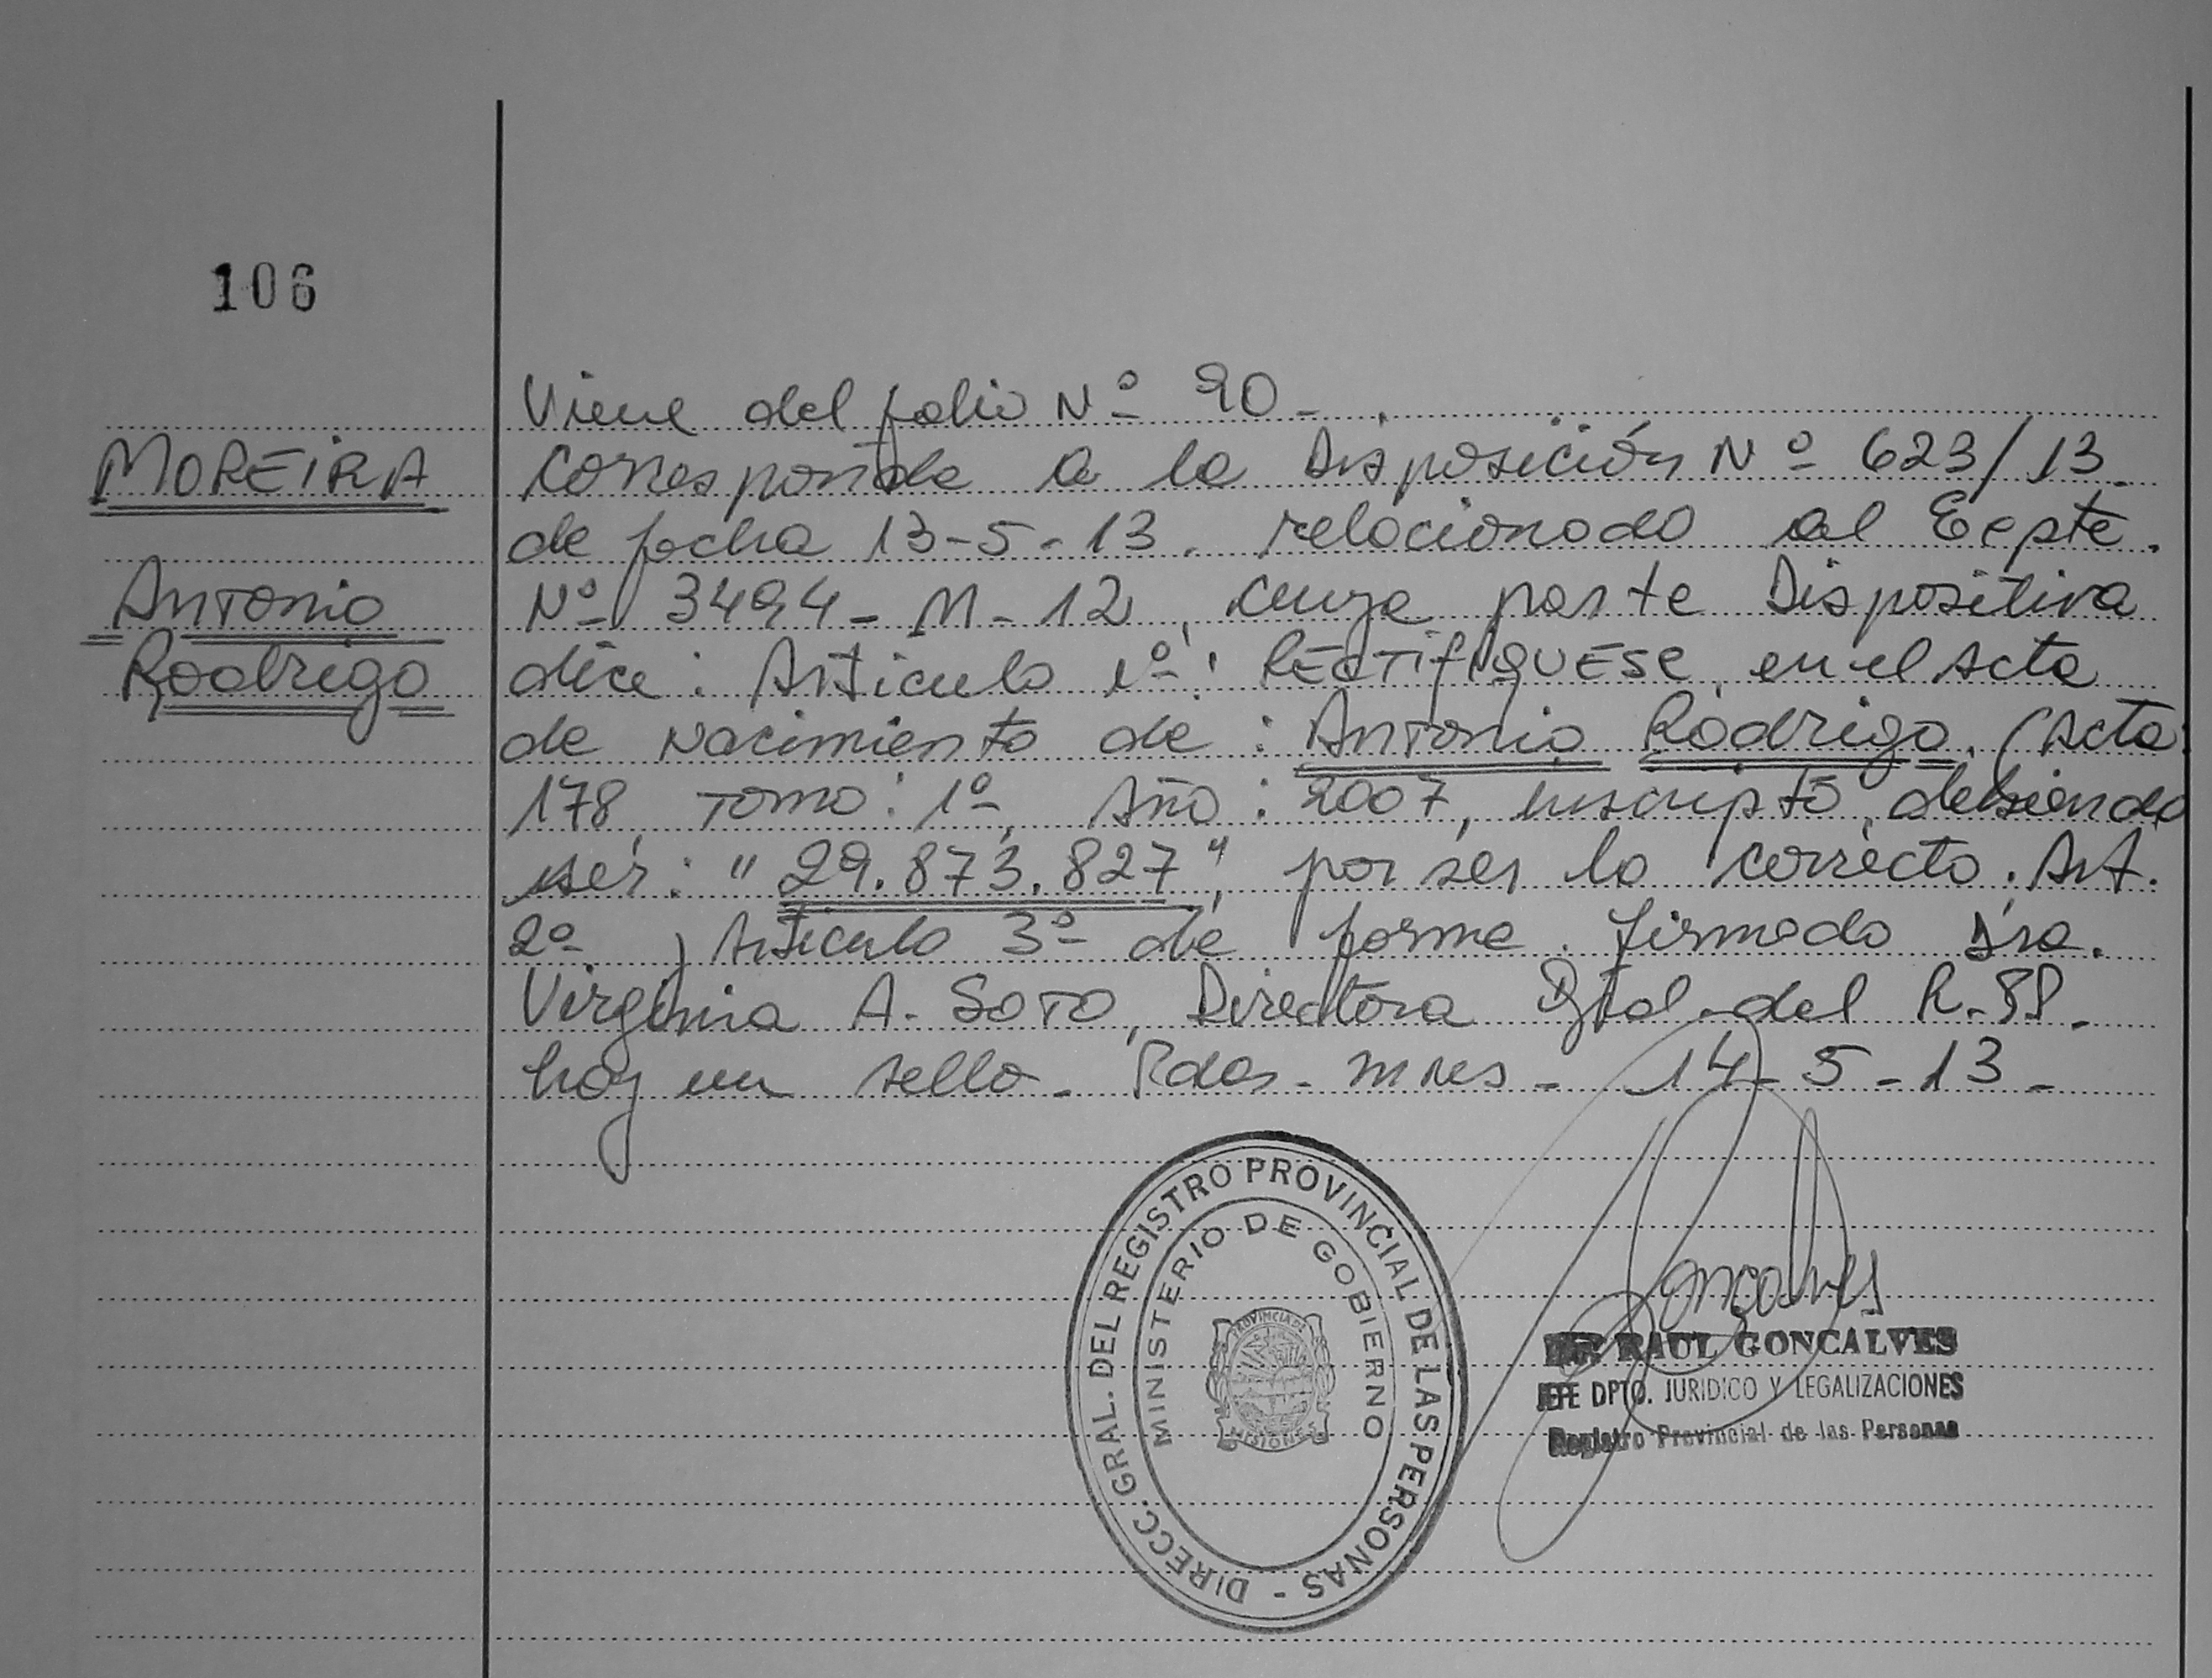 106
Viene del folio Nº 90-.
MOREIRA
Corresponde a la Disposición Nº 623/13.
de fecha 13-5-13. relacionado al Eepte.
Antonio
Nº 3494-M-12, cuya parte Dispositiva
Rodrigo
dice: Artículo 1º: RECTIFIQUESE, en el Acta
de Nacimiento de: Antonio Rodrigo, (Acta:
178, Tomo: 1º, Año: 2007, inscripto, debiendo
ser: "29.873.827", por ser lo correcto. Art.
2º y Artículo 3º de forma. firmado Dra.
Virginia A. SOTO, Directora Gral. del R.PP.
hoy un sello. Pdas. Mnes - 14-5-13-
DIRECC. GRAL. DEL REGISTRO PROVINCIAL DE LAS PERSONAS -
MINISTERIO DE GOBIERNO
PROVINCIA DE
MISIONES
Goncalves
RAUL GONCALVES
JEFE DPTO. JURIDICO Y LEGALIZACIONES
Registro Provincial de las Personas